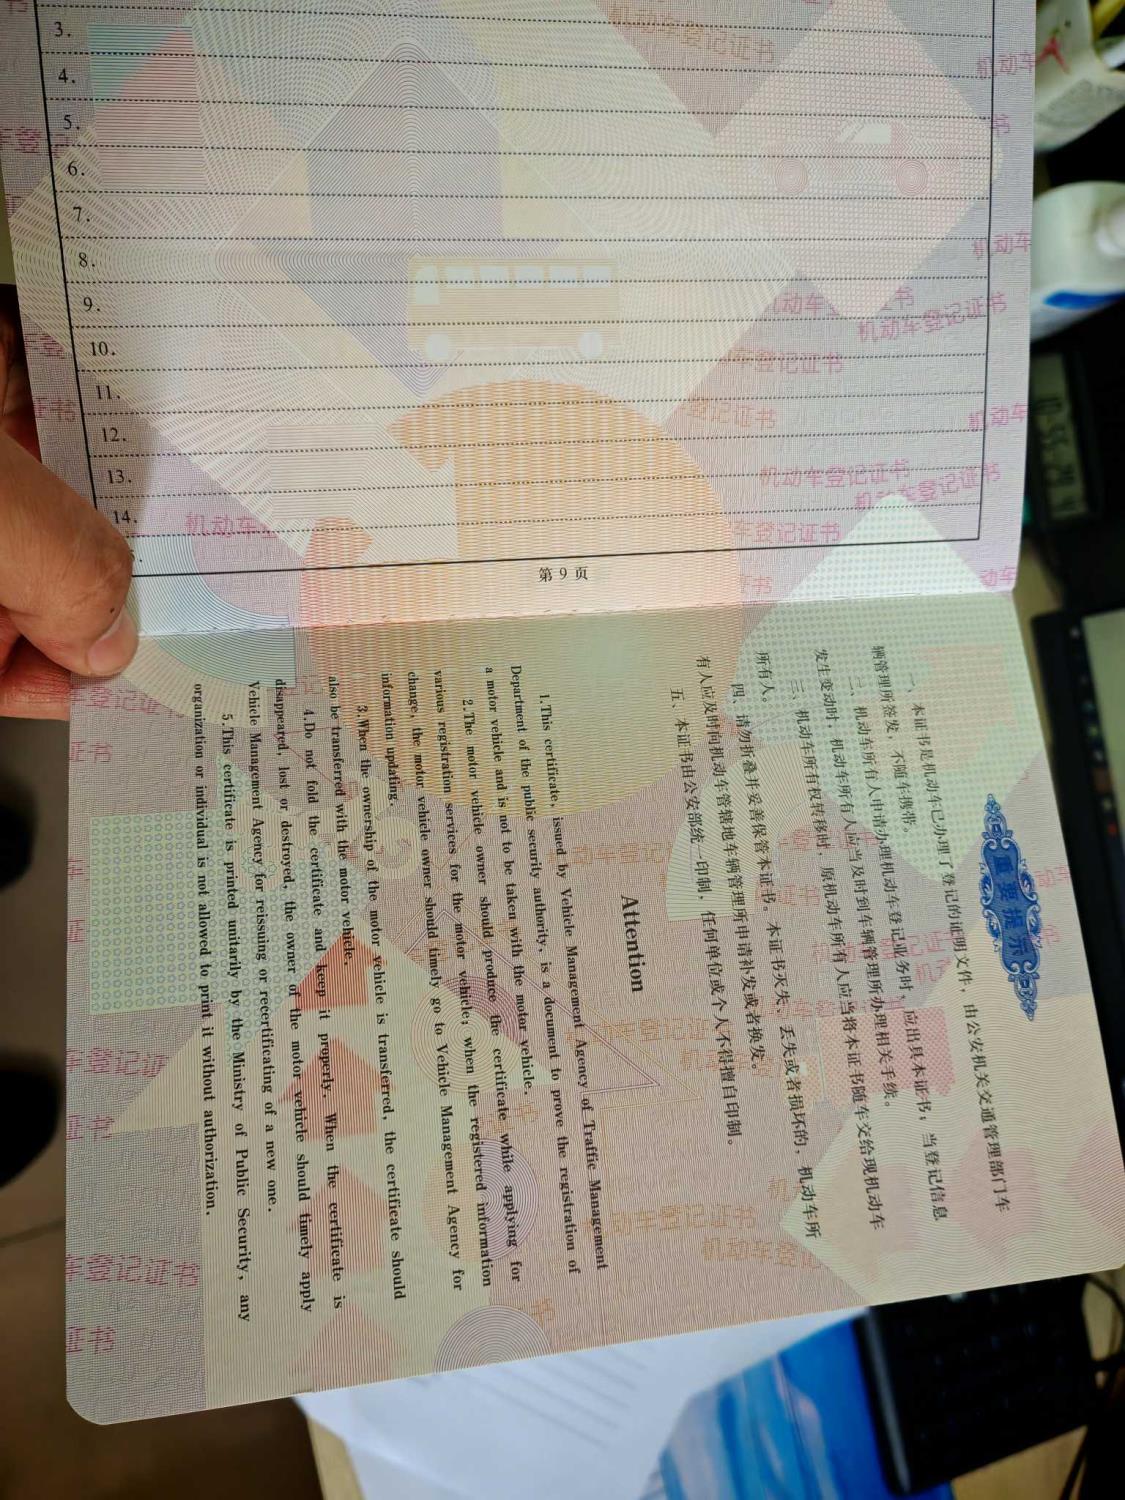 3.
4.
5.
6.
7.
8.
9.
10.
11.
12.
13.
14.
第 9 页
重要提示
一、本证书是机动车已办理了登记的证明文件，由公安机关交通管理部门车
辆管理所签发，不随车携带。
二、机动车所有人申请办理机动车登记业务时，应出具本证书；当登记信息
发生变动时，机动车所有人应当及时到车辆管理所办理相关手续。
三、机动车所有权转移时，原机动车所有人应当将本证书随车交给现机动车
所有人。
四、请勿折叠并妥善保管本证书。本证书灭失、丢失或者损坏的，机动车所
有人应及时向机动车管辖地车辆管理所申请补发或者换发。
五、本证书由公安部统一印制，任何单位或个人不得擅自印制。
Attention
1.This certificate, issued by Vehicle Management Agency of Traffic Management
Department of the public security authority, is a document to prove the registration of
a motor vehicle and is not to be taken with the motor vehicle.
2.The motor vehicle owner should produce the certificate while applying for
various registration services for the motor vehicle; when the registered information
change, the motor vehicle owner should timely go to Vehicle Management Agency for
information updating.
3.When the ownership of the motor vehicle is transferred, the certificate should
also be transferred with the motor vehicle.
4.Do not fold the certificate and keep it properly. When the certificate is
disappeared, lost or destroyed, the owner of the motor vehicle should timely apply
Vehicle Management Agency for reissuing or recertificating of a new one.
5.This certificate is printed unitarily by the Ministry of Public Security, any
organization or individual is not allowed to print it without authorization.
机动车登记证书